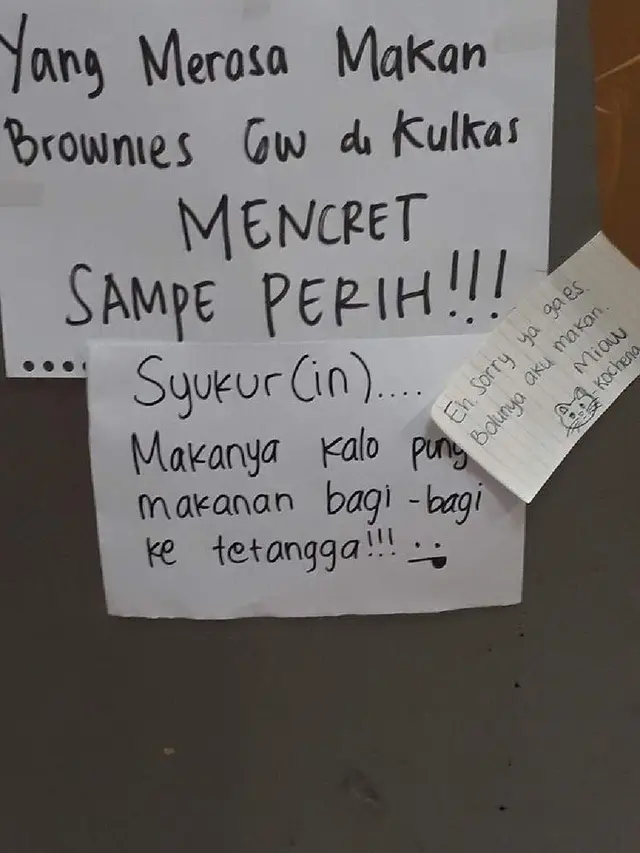 Yang Merasa Makan
Brownies Gw di Kulkas
MENCRET
SAMPE PERIH!!!
Syukur(in)....
Makanya kalo puny
makanan bagi-bagi
ke tetangga!!!
Eh Sorry ya gaes.
Bolunya aku makan.
Miaw
kocheng